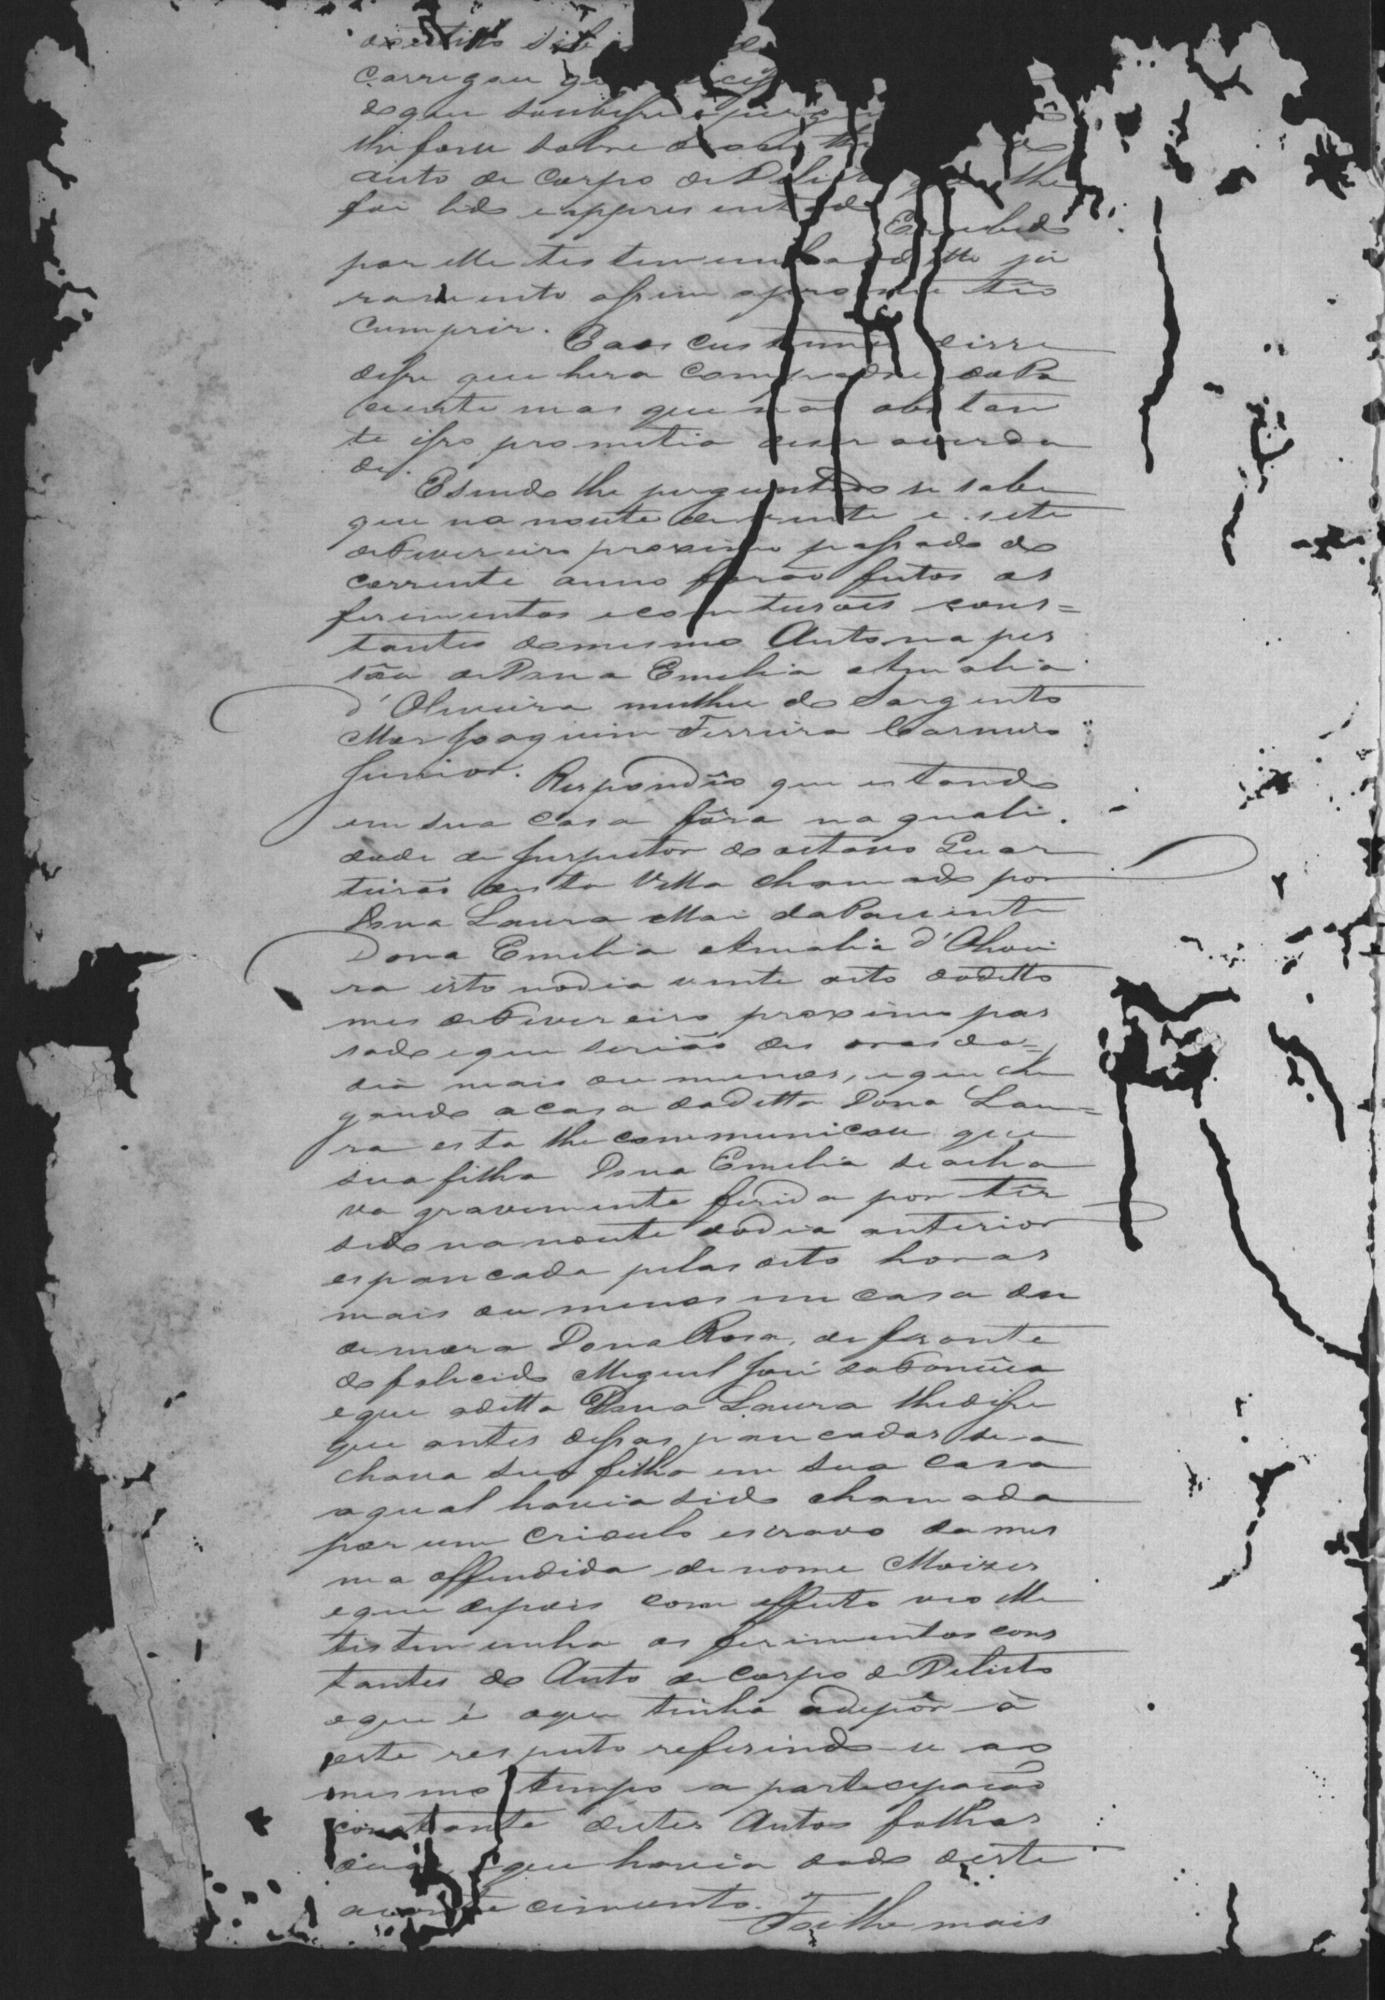 carregou que
do que soubesse e
lhe fosse sobre
auto de Corpo de Delicto que lhe
foi lido e appresentado. Recebido
por elle testemunha o ditto ju
ramento assim o prometteo
cumprir.
E aos custumes disse
disse que hera Compadre da Pa
ciente mas que não obstan
te isso promettia diser averda
de.
E sendo lhe perguntado se sabe
que na noute de vinte e sete
de Fevereiro proximo passado do
corrente anno forão feitos os
ferimentos e contusoẽs cons=
tantes do mesmo Auto na pes
sôa de Dona Emelia Amalia
d'Oliveira mulher do Sargento
Mor Joaquim Ferreira Carneiro
Junior.
Respondêo que estando
em sua casa fôra na quali
dade de Inspector do oitavo Quar
teirão desta Villa chamado por
Dona Laura Mai da Paciente
Dona Emelia Amalia d'Olivei
ra isto no dia vinte oito do ditto
mes de Fevereiro proximo pas
sado e que serião des oras do=
dia mais ou menos, e que che
gando a casa da ditta Dona Lau=
ra esta lhe communicou que
sua filha Dona Emelia se acha
va gravemente ferida por têr
sido na noute do dia anterior
espancada pelas oito horas
mais ou menos em casa de
de mora Dona Rosa, de fronte
do falecido Miguel José da Fonsêca
e que a ditta Dona Laura lhe disse
que antes dessas pancadas se a
chava sua filha em sua casa
a qual havia sido chamada
por um crioulo escravo da mes
ma offendida de nome Moizes
e que depois com effeito vio elle
testemunha os ferimentos cons
tantes do Auto de Corpo de Delicto
e que é o que tinha adepôr à
este respeito referindo-se ao
mesmo tempo a partecipação
constante destes Autos folhas
duas que havia dado deste
acontecimento.
Foi lhe mais